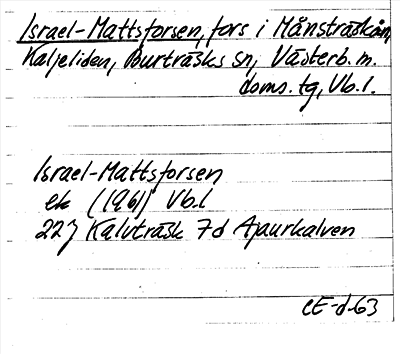 Israel-Mattsforsen, fors i Månsträskån,
Kaljeliden, Burträsks sn, Västerb. m.
doms. tg, Vb. l.
Israel-Mattsforsen
ek (1961) Vb.l
22J Kalvträsk 7d Ajaurkalven
CE-d-63